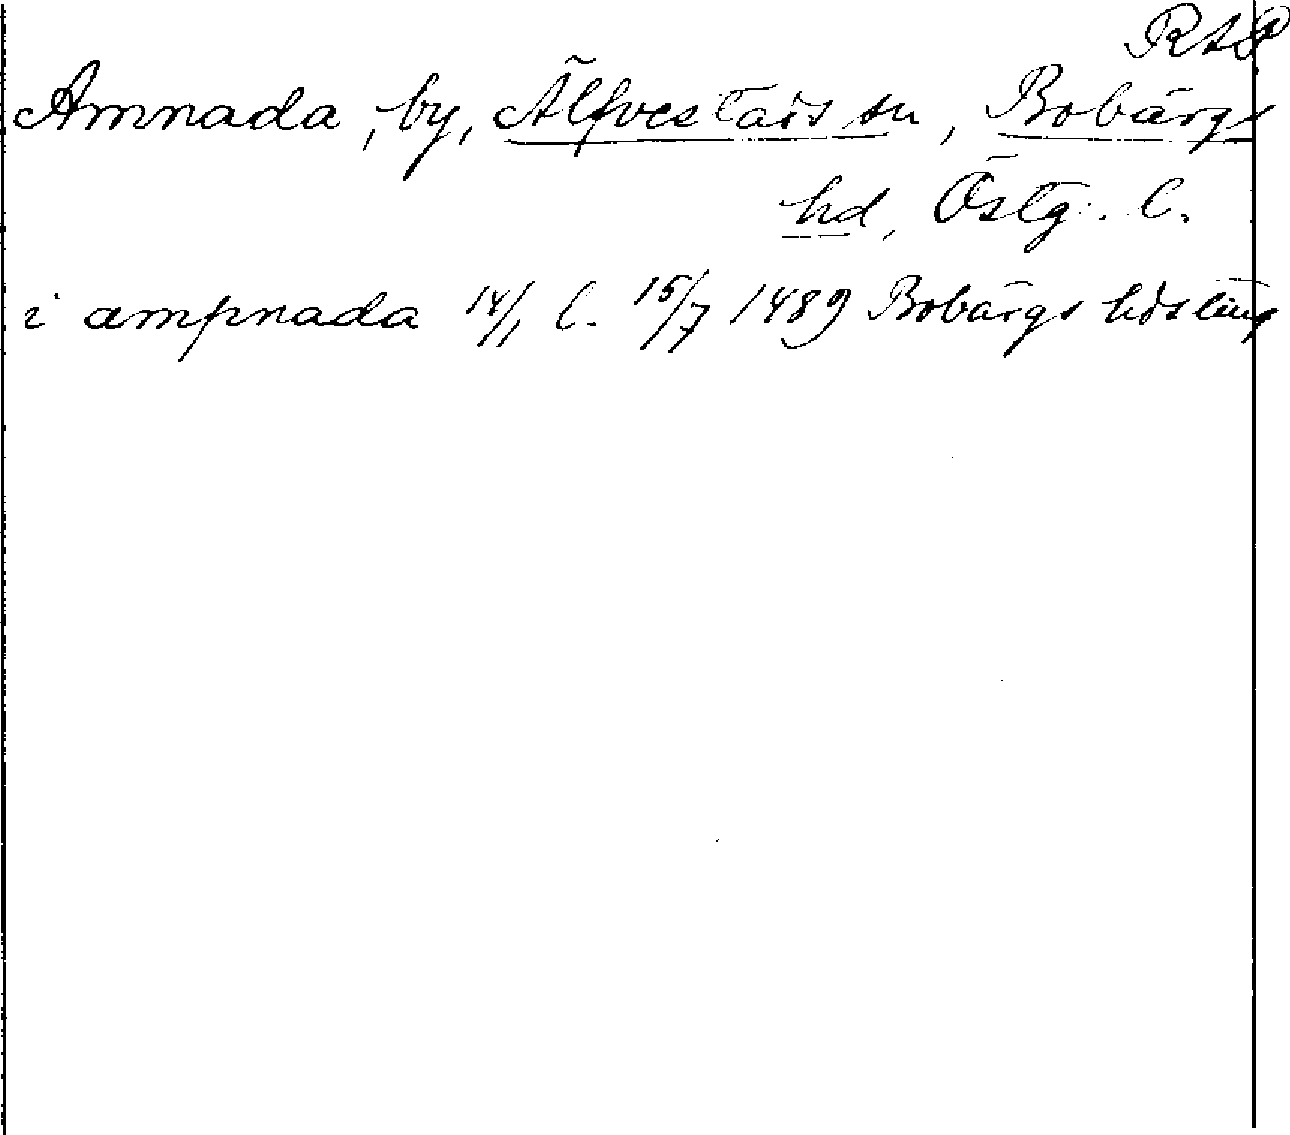 RAP
Amnada, by, Älfvestads sn, Bobärgs
hd, Östg. l.
i ampnada 14/1, l. 15/7 1489 Bobärgs hds ting